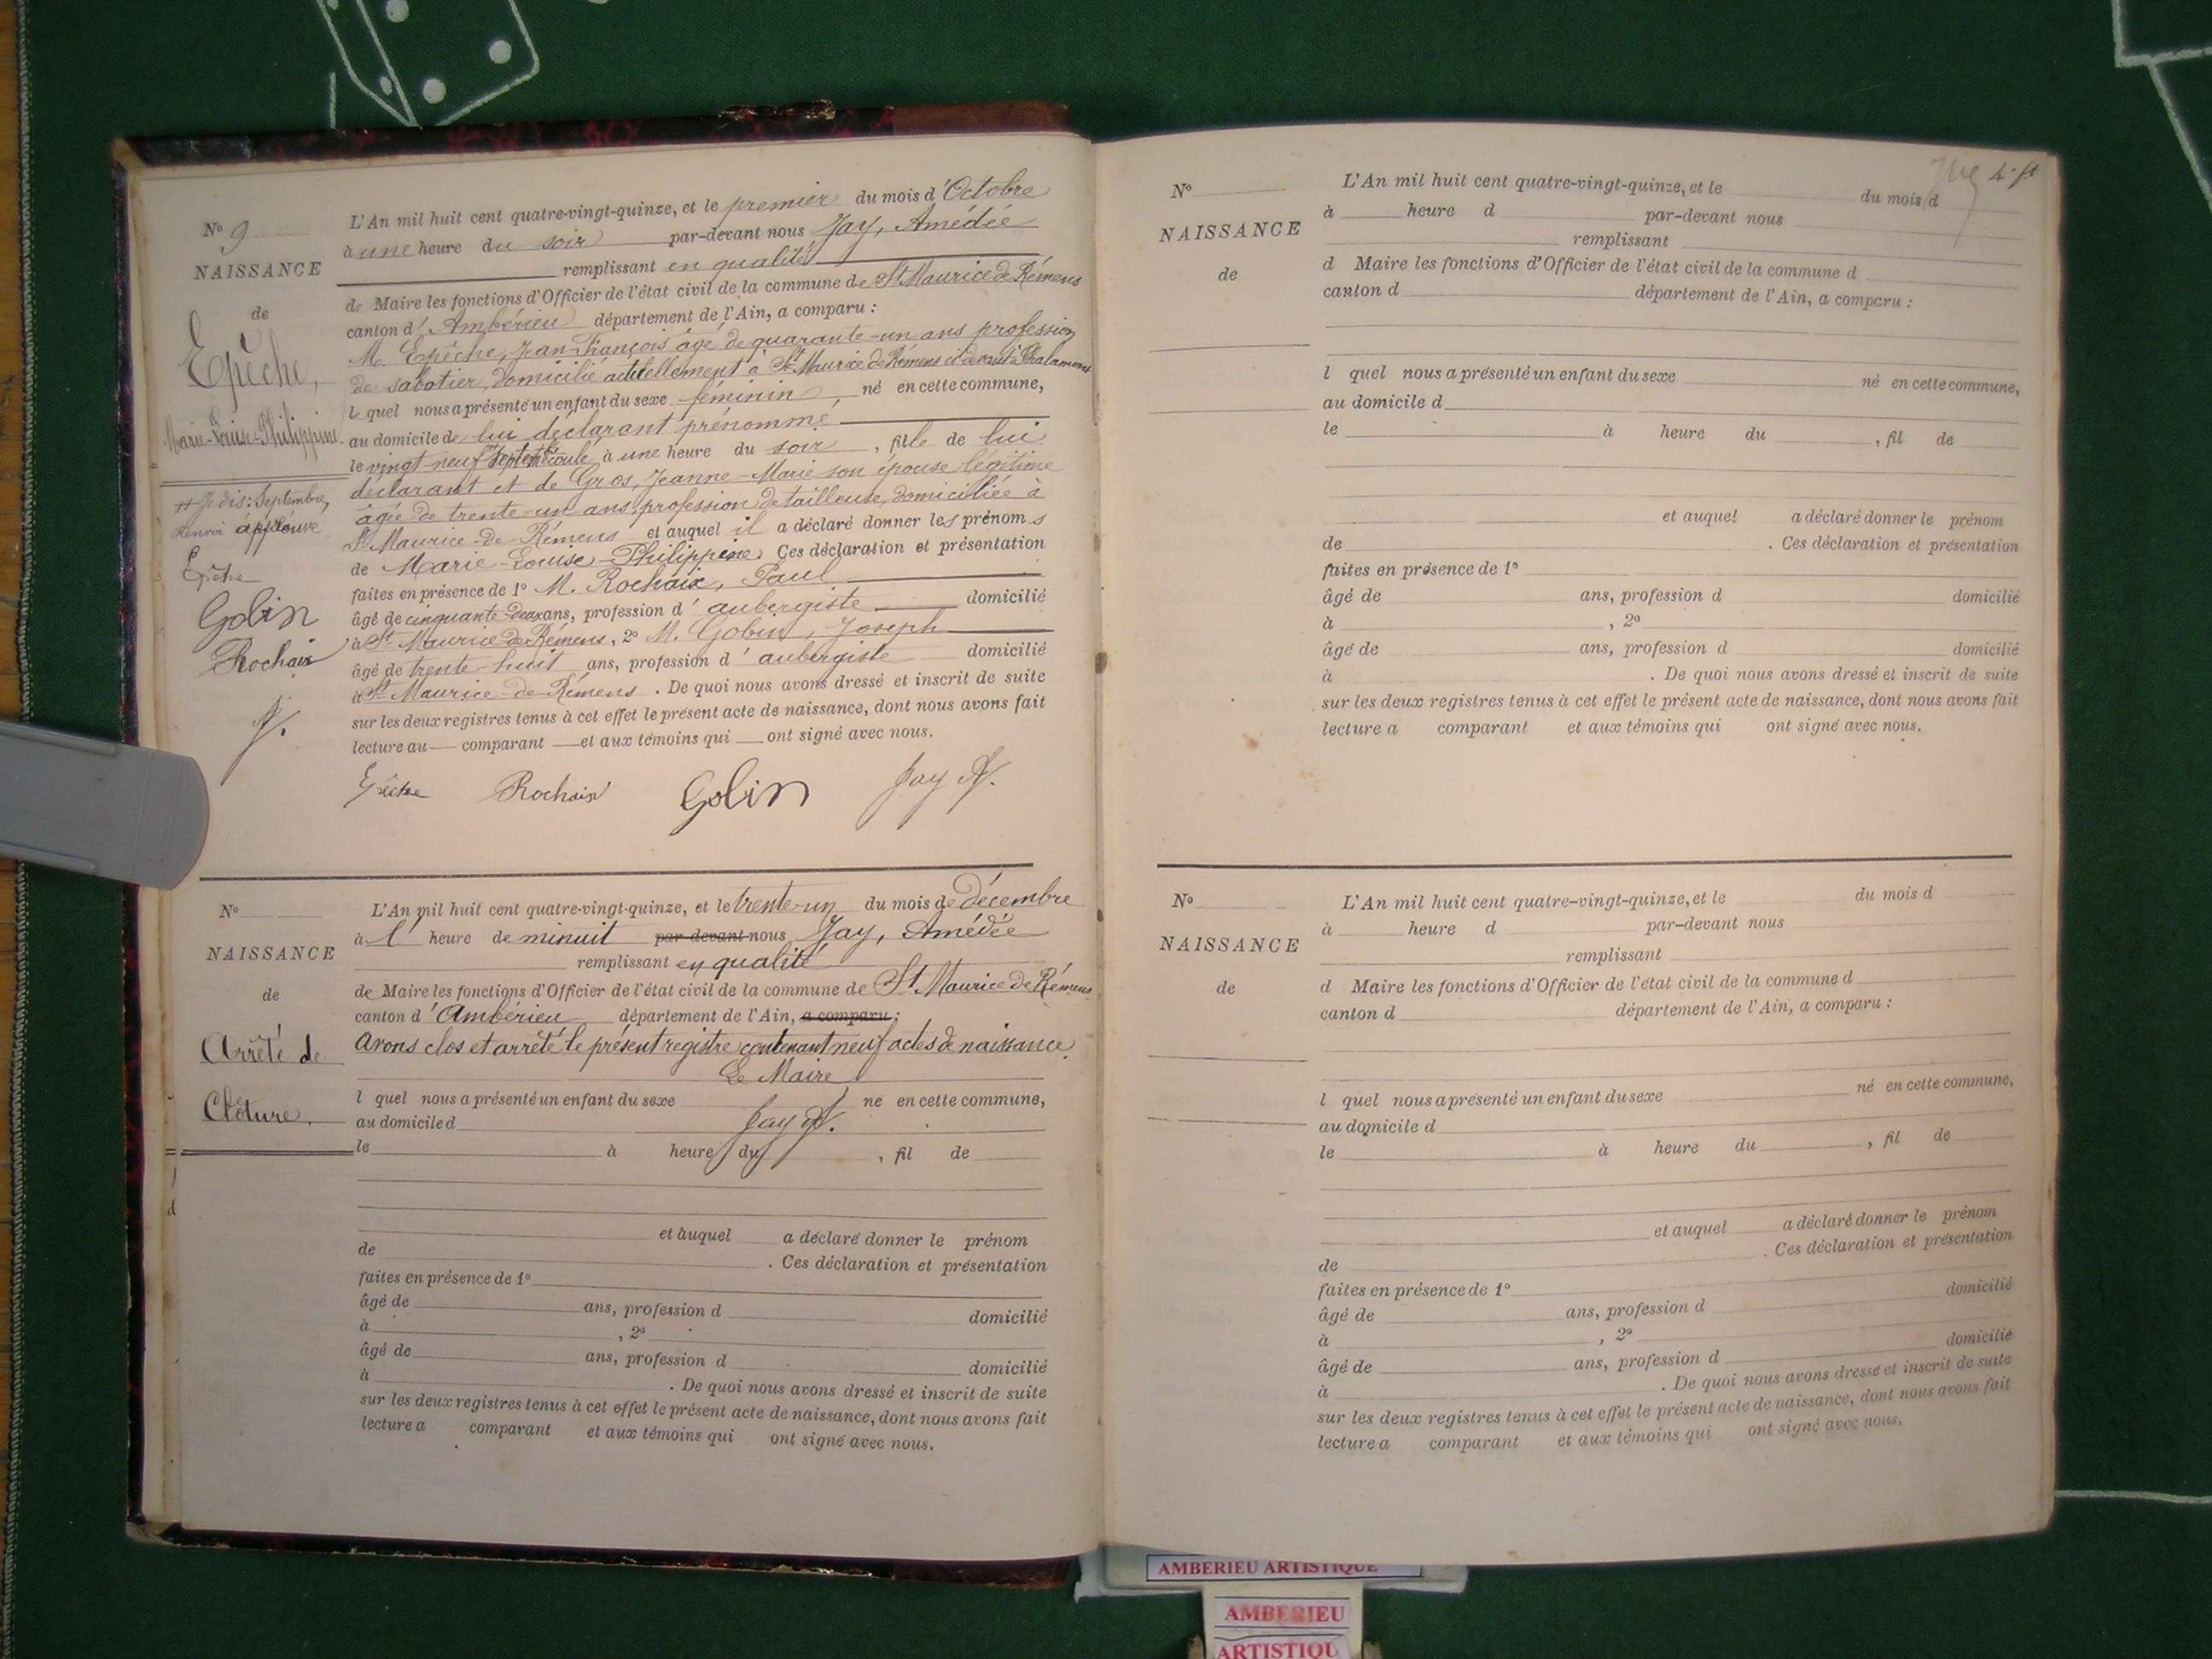 N° 9
NAISSANCE
de
Epêche,
Marie-Louise-Philippine.
# Je dis: Septembre,
Renvoi approuvé
Epêche
Gobin
Rochaix
J.
L'An mil huit cent quatre-vingt-quinze, et le premier du mois d'Octobre
à une heure du soir par-devant nous Jay, Amédée
remplissant en qualité
de Maire les fonctions d'Officier de l'état civil de la commune de St Maurice de Rémens
canton d'Ambérieu département de l'Ain, a comparu :
M. Epêche, Jean-François âgé de quarante-un ans profession
de sabotier, domicilié actuellement à St Maurice de Rémens et devant à Chalamont
le quel nous a présenté un enfant du sexe féminin, né en cette commune,
au domicile de lui déclarant prénommé
le vingt-neuf Septembre écoulé à une heure du soir, fille de lui
déclarant et de Gros, Jeanne-Marie son épouse légitime
âgée de trente-un ans, profession de tailleuse, domiciliée à
St Maurice-de-Rémens et auquel il a déclaré donner les prénoms
de Marie-Louise-Philippine. Ces déclaration et présentation
faites en présence de 1° M. Rochaix, Paul
âgé de cinquante-deux ans, profession d'aubergiste domicilié
à St Maurice de Rémens, 2° M. Gobin, Joseph
âgé de trente-huit ans, profession d'aubergiste domicilié
à St Maurice-de-Rémens. De quoi nous avons dressé et inscrit de suite
sur les deux registres tenus à cet effet le présent acte de naissance, dont nous avons fait
lecture au comparant et aux témoins qui ont signé avec nous.
Epêche Rochaix Gobin Jay A.
N°
NAISSANCE
de
Arrêté de
Clôture.
L'An mil huit cent quatre-vingt-quinze, et le trente-un du mois de décembre
à l' heure de minuit par-devant nous Jay, Amédée
remplissant en qualité
de Maire les fonctions d'Officier de l'état civil de la commune de St Maurice de Rémens
canton d'Ambérieu département de l'Ain, a comparu :
avons clos et arrêté le présent registre contenant neuf actes de naissance.
Le Maire
l quel nous a présenté un enfant du sexe né en cette commune,
au domicile d Jay A.
le à heure du , fil de
et auquel a déclaré donner le prénom
de . Ces déclaration et présentation
faites en présence de 1°
âgé de ans, profession d domicilié
à , 2°
âgé de ans, profession d domicilié
à . De quoi nous avons dressé et inscrit de suite
sur les deux registres tenus à cet effet le présent acte de naissance, dont nous avons fait
lecture a comparant et aux témoins qui ont signé avec nous.
N°
NAISSANCE
de
L'An mil huit cent quatre-vingt-quinze, et le du mois d
à heure d par-devant nous
remplissant
d Maire les fonctions d'Officier de l'état civil de la commune d
canton d département de l'Ain, a comparu :
l quel nous a présenté un enfant du sexe né en cette commune,
au domicile d
le à heure du , fil de
et auquel a déclaré donner le prénom
de . Ces déclaration et présentation
faites en présence de 1°
âgé de ans, profession d domicilié
à , 2°
âgé de ans, profession d domicilié
à . De quoi nous avons dressé et inscrit de suite
sur les deux registres tenus à cet effet le présent acte de naissance, dont nous avons fait
lecture a comparant et aux témoins qui ont signé avec nous.
N°
NAISSANCE
de
L'An mil huit cent quatre-vingt-quinze, et le du mois d
à heure d par-devant nous
remplissant
d Maire les fonctions d'Officier de l'état civil de la commune d
canton d département de l'Ain, a comparu :
l quel nous a présenté un enfant du sexe né en cette commune,
au domicile d
le à heure du , fil de
et auquel a déclaré donner le prénom
de . Ces déclaration et présentation
faites en présence de 1°
âgé de ans, profession d domicilié
à , 2°
âgé de ans, profession d domicilié
à . De quoi nous avons dressé et inscrit de suite
sur les deux registres tenus à cet effet le présent acte de naissance, dont nous avons fait
lecture a comparant et aux témoins qui ont signé avec nous.
AMBERIEU ARTISTIQUE
AMBERIEU
ARTISTIQU